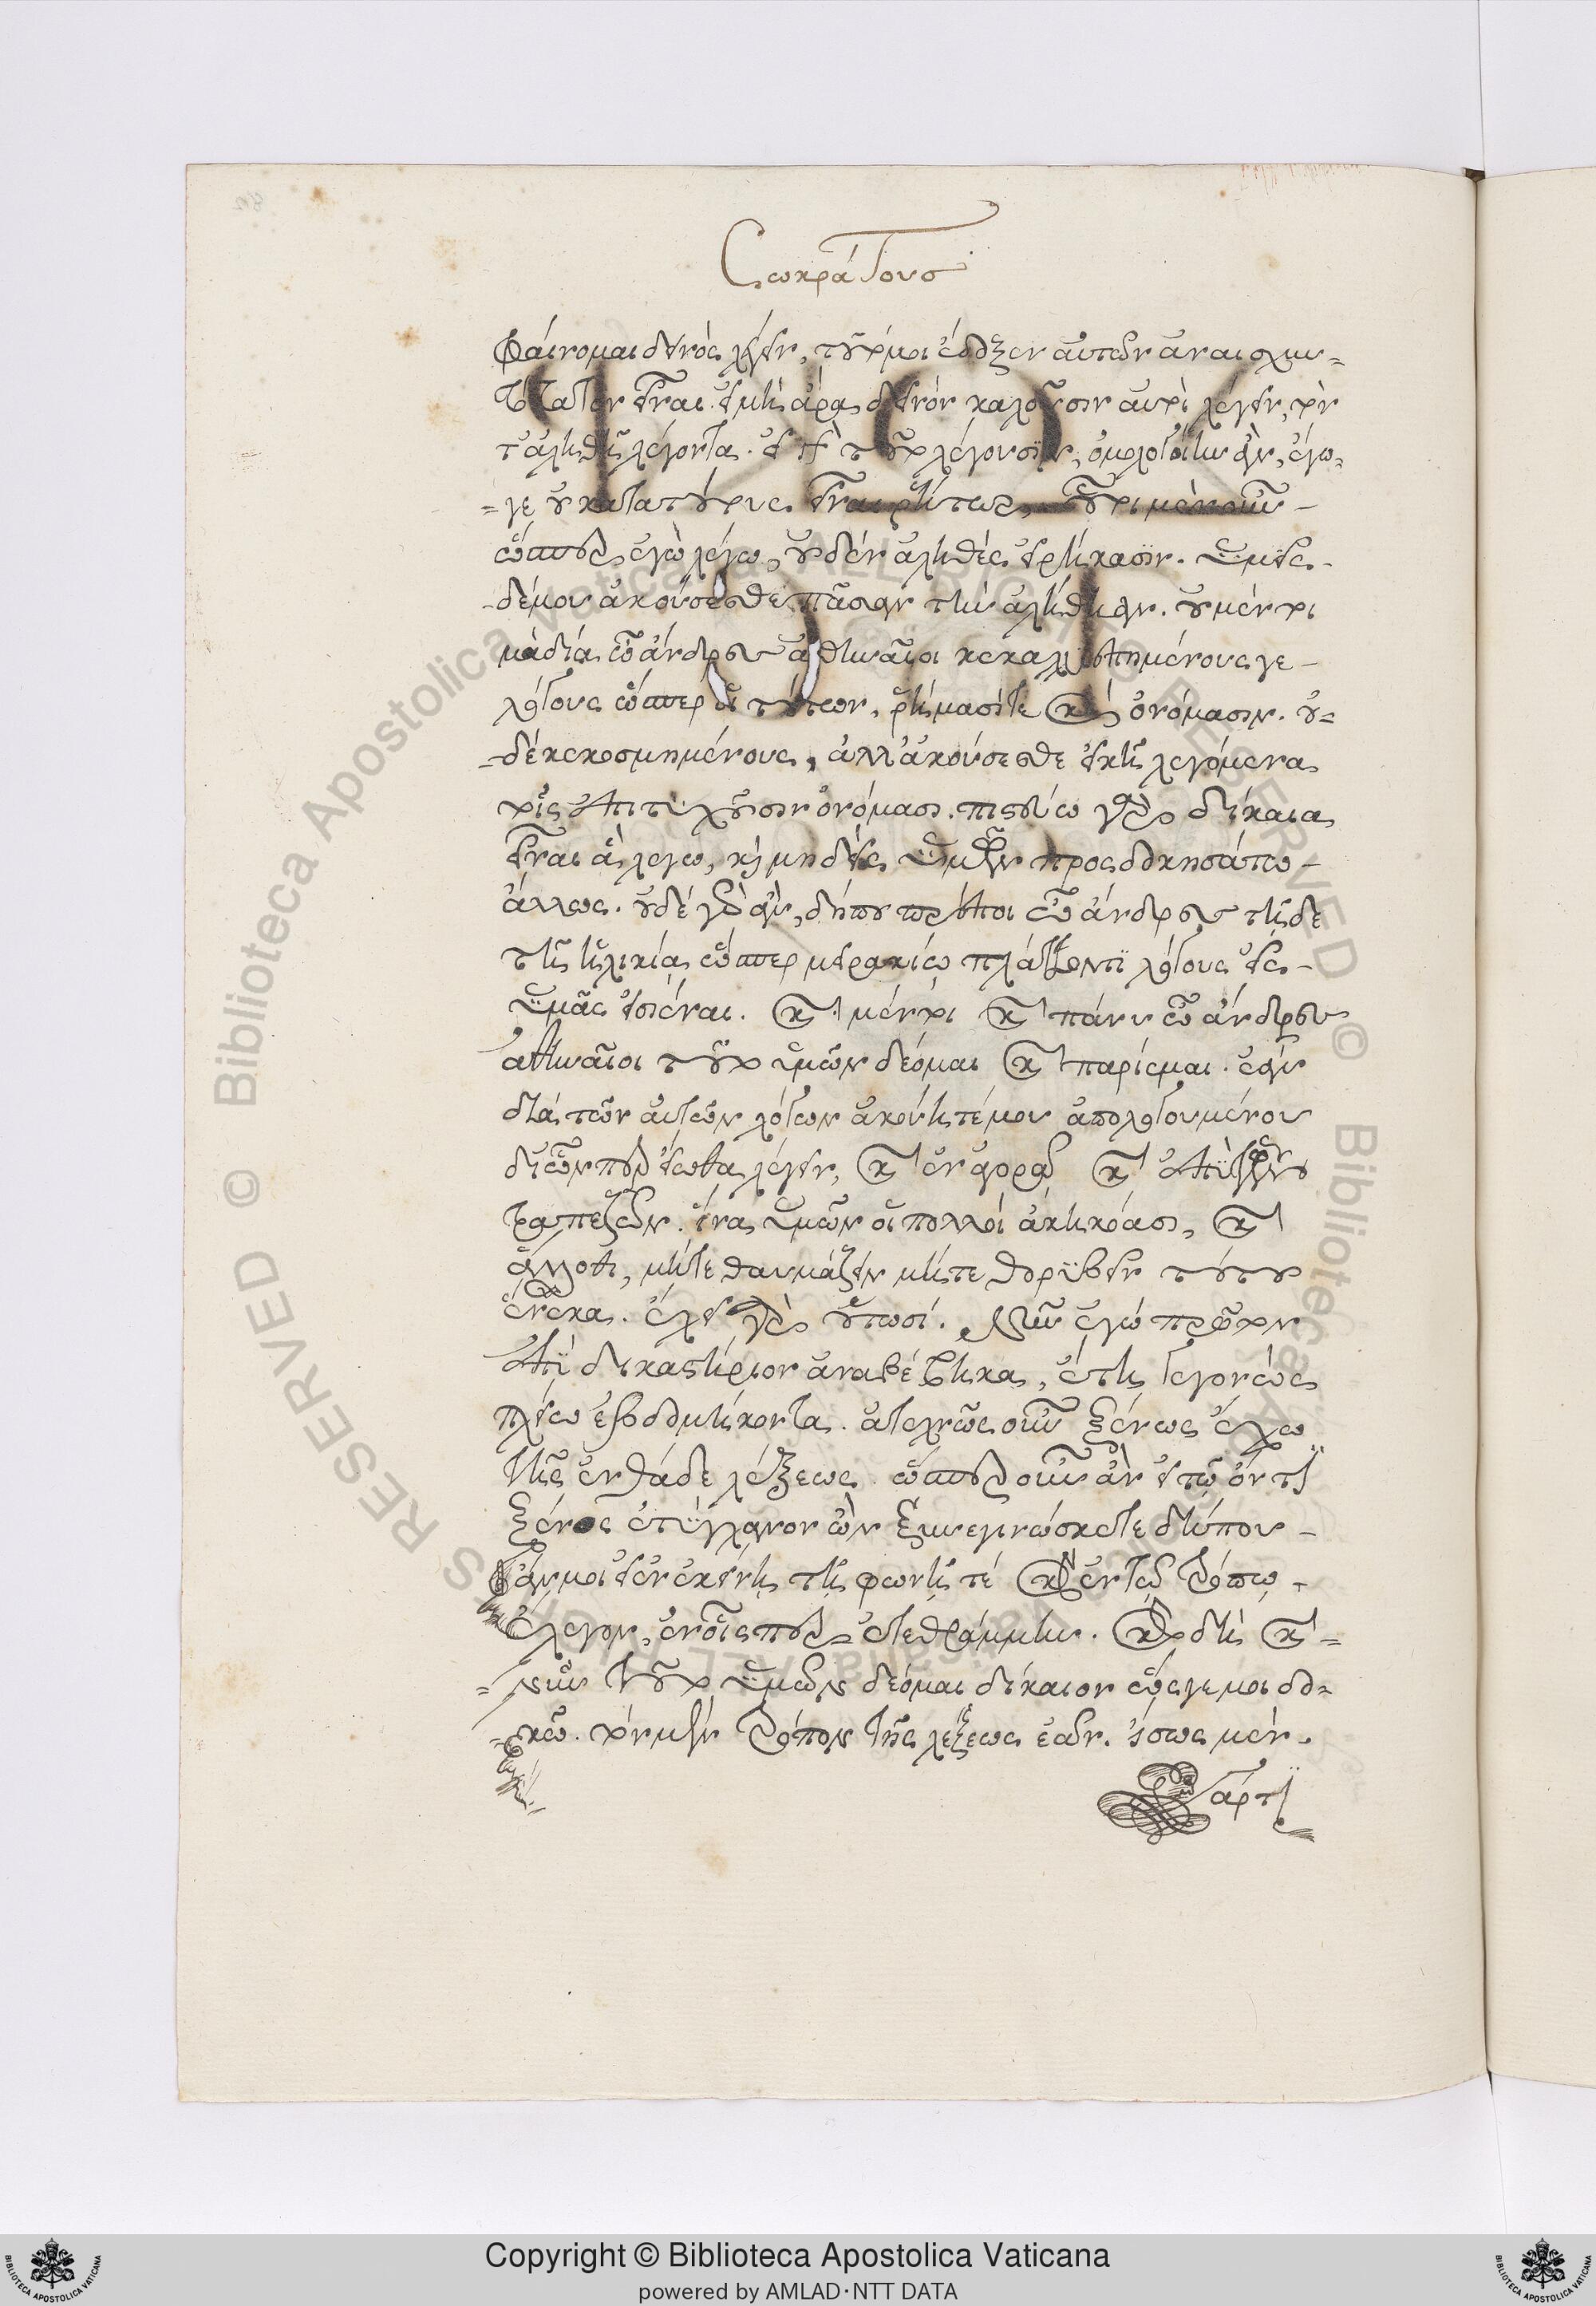 Σωκράτους
φαίνομαι δεινὸς λέγειν, τοῦτό μοι ἔδοξεν αὐτῶν ἀναισχυν=
τότατον εἶναι. εἰ μὴ ἄρα δεινὸν καλοῦσιν οὗτοι λέγειν, τὸν
τ' ἀληθῆ λέγοντα. εἰ μὲν τοῦτο λέγουσιν, ὁμολογοίην ἂν, ἔγω=
=γε οὐ κατὰ τούτους εἶναι ῥήτωρ. οὗτοι μὲν οὖν -
ὥσπερ ἐγὼ λέγω, οὐδὲν ἀληθὲς εἰρήκασιν. ὑμεῖς -
-δέ μου ἀκούσεσθε πᾶσαν τὴν ἀλήθειαν. οὐ μέντοι
μὰ δία ὦ ἄνδρες ἀθηναῖοι κεκαλλιεπημένους γε -
λόγους ὥσπερ οἱ τούτων, ῥήμασί τε καὶ ὀνόμασιν. οὐ=
-δὲ κεκοσμημένους, ἀλλ' ἀκούσεσθε εἰκῆ λεγόμενα
τοῖς ἐπιτυχοῦσιν ὀνόμασι. πιστεύω γὰρ δίκαια
εἶναι ἃ λέγω, καὶ μηδεὶς ὑμῶν προσδοκησάτω -
ἄλλως. οὐδὲ γὰρ ἂν, δήπου πρέποι ὦ ἄνδρες τῆδε
τῆ ἡλικία ὥσπερ μειρακίω πλάττοντι λόγους εἰς -
ὑμᾶς εἰσιέναι. καὶ μέντοι καὶ πάνυ ὦ ἄνδρες
ἀθηναῖοι τοῦτο ὑμῶν δέομαι καὶ παρίεμαι. ἐὰν
διὰ τῶν αὐτῶν λόγων ἀκούητέ μου ἀπολογουμένου
δι' ὧνπερ εἴωθα λέγειν, καὶ ἐν ἀγορᾷ καὶ ἐπὶ τῶν
τραπεζῶν. ἵνα ὑμῶν οἱ πολλοὶ ἀκηκόασι, καὶ
ἄλλοθι, μήτε θαυμάζειν μήτε θορυβεῖν τούτου
ἕνεκα. ἔχει γὰρ οὑτωσί. νῦν ἐγὼ πρῶτον
ἐπὶ δικαστήριον ἀναβέβηκα, ἔτη γεγονὼς
πλείω ἑβδομήκοντα. ἀτεχνῶς οὖν ξένως ἔχω
τῆς ἐνθάδε λέξεως. ὥσπερ οὖν ἂν εἰ τῷ ὄντι
ξένος ἐτύγχανον ὢν ξυνεγινώσκετε δήπου -
ἄν μοι εἰ ἐν ἐκείνη τῆ φωνῆ τέ καὶ ἐν τῷ τρόπω -
ἔλεγον, ἐν οἷσπερ ἐτεθράμμην. καὶ δὴ καὶ =
= νῦν τοῦτο ὑμῶν δέομαι δίκαιον ὥς γέ μοι δο=
=κῶ. τὸν μὲν τρόπον τῆς λέξεως ἐᾶν. ἴσως μὲν.
γὰρ τι